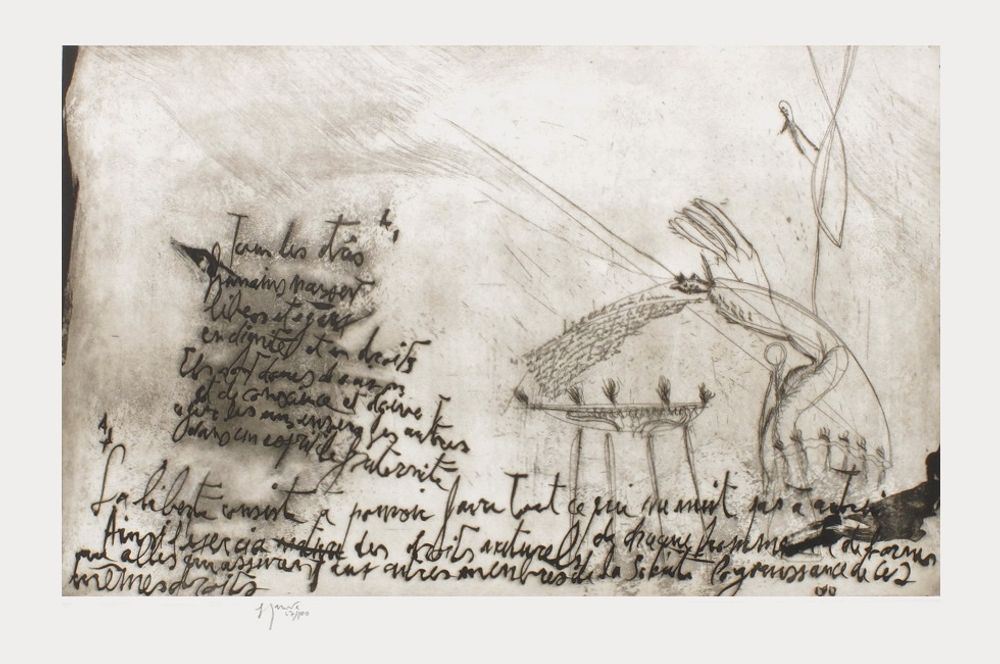 Tous les êtres
humains naissent
libres et égaux
en dignité et en droits
Ils sont doués de raison
et de conscience et doivent
agir les uns envers les autres
dans un esprit de fraternité
La liberté consiste à pouvoir faire tout ce qui ne nuit pas à autrui
Ainsi l'exercice des droits naturels de chaque homme n'a de bornes
que celles qui assurent aux autres membres de la Société la jouissance de ces
mêmes droits